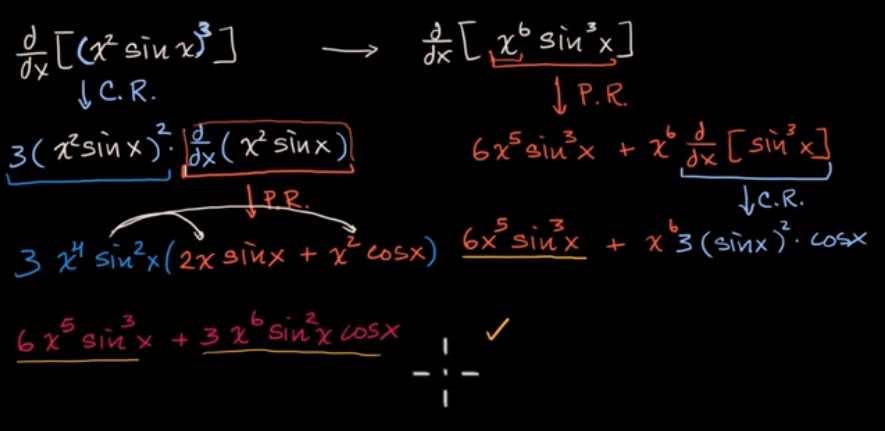 d/dx [(x² sin x)³] → d/dx [x⁶ sin³x]
↓ C.R.
↓ P.R.
3(x² sin x)² · d/dx (x² sin x)
6x⁵ sin³x + x⁶ d/dx [sin³x]
↓ P.R.
↓ C.R.
3 x⁴ sin²x (2x sin x + x² cos x)
6x⁵ sin³x + x⁶ 3 (sin x)² · cos x
6x⁵ sin³x + 3x⁶ sin²x cos x ✓